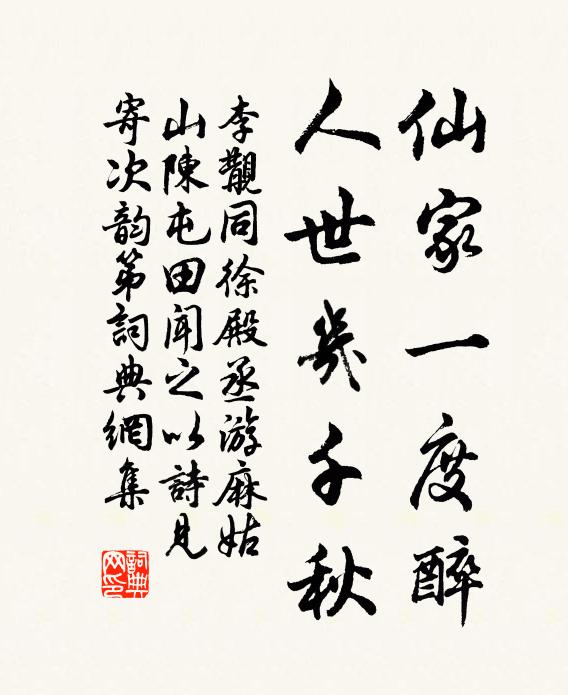 仙家一度醉
人世幾千秋
李覯同徐殿丞游麻姑
山陳屯田聞之以詩見
寄次韵第詞典網集
詞典
网印